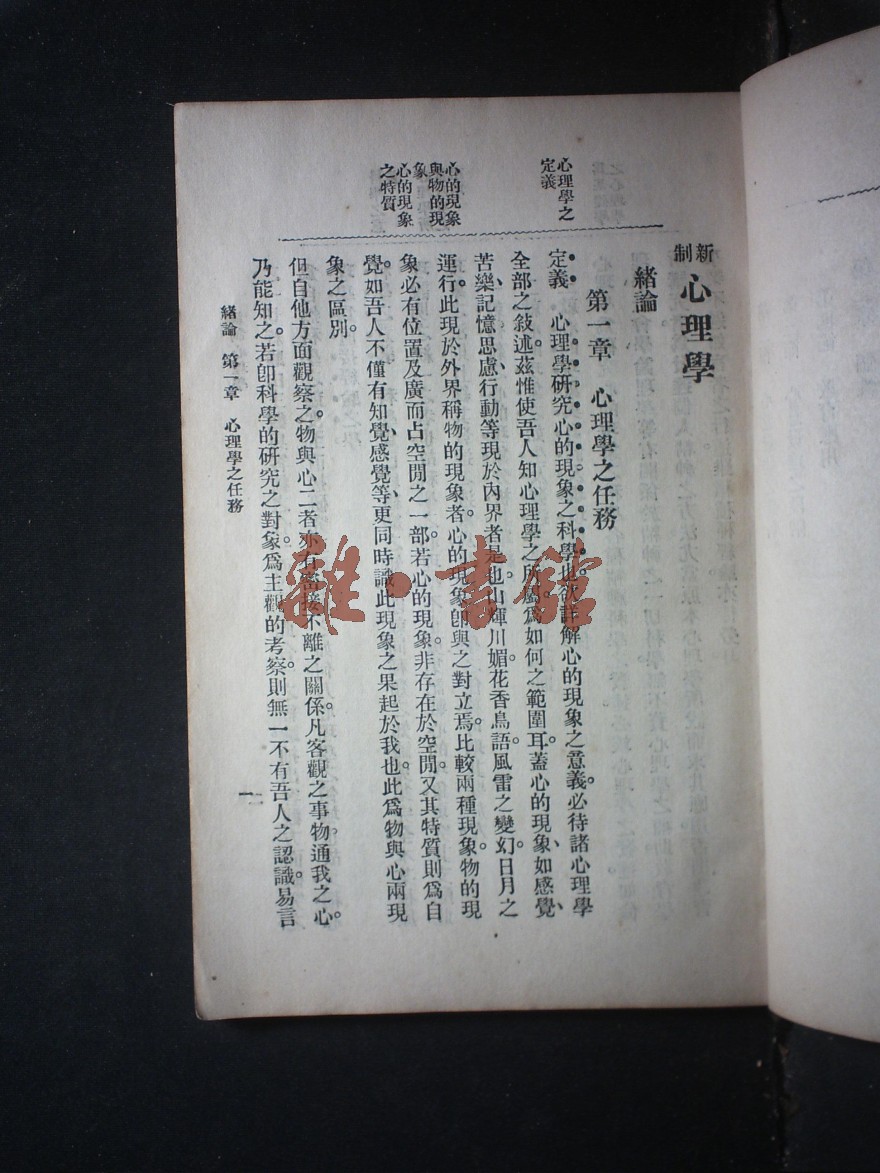 新制
心理學
緒論
第一章　心理學之任務
心理學之
定義
定義　心理學研究心的現象之科學也。欲詳解心的現象之意義。必待諸心理學
全部之敍述。茲惟使吾人知心理學之所屬爲如何之範圍耳。蓋心的現象、如感覺、
苦樂、記憶思慮行動等現於內界者是也。山輝川媚。花香鳥語。風雷之變幻。日月之
運行。此現於外界稱物的現象者。心的現象卽與之對立焉。比較兩種現象。物的現
心的現象
與物的現
象
心的現象
之特質
象必有位置及廣而占空間之一部。若心的現象非存在於空間。又其特質則爲自
覺。如吾人不僅有知覺、感覺等。更同時識此現象之果起於我也。此爲物與心兩現
象之區別。
但自他方面觀察之。物與心二者亦有密接不離之關係。凡客觀之事物。通我之心。
乃能知之。若卽科學的研究之對象。爲主觀的考察。則無一不有吾人之認識。易言
緒論　第一章　心理學之任務
一
雜·書館